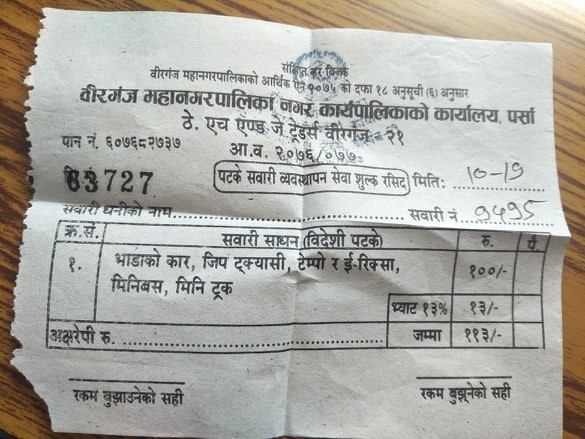 संक्षिप्त कर बिजक
वीरगंज महानगरपालिकाको आर्थिक ऐन २०७५ को दफा १८ अनुसूची (६) अनुसार
वीरगंज महानगरपालिका नगर कार्यपालिकाको कार्यालय, पर्सा
ठे. एच एण्ड जे ट्रेडर्स वीरगंज - २१
पान नं. ६०७६८२७३७
आ.व. २०७६/०७७
63727
पटके सवारी व्यवस्थापन सेवा शुल्क रसिद
मिति: 10-19
सवारी धनीको नाम
सवारी नं. 9495
क्र.सं. सवारी साधन (विदेशी पटके) रु. पै.
१. भाडाको कार, जिप ट्क्यासी, टेम्पो र ई-रिक्सा, १००/-
मिनिबस, मिनि ट्रक
भ्याट १३% १३/-
अक्षरेपी रु. जम्मा ११३/-
रकम बुझाउनेको सही
रकम बुझ्नेको सही